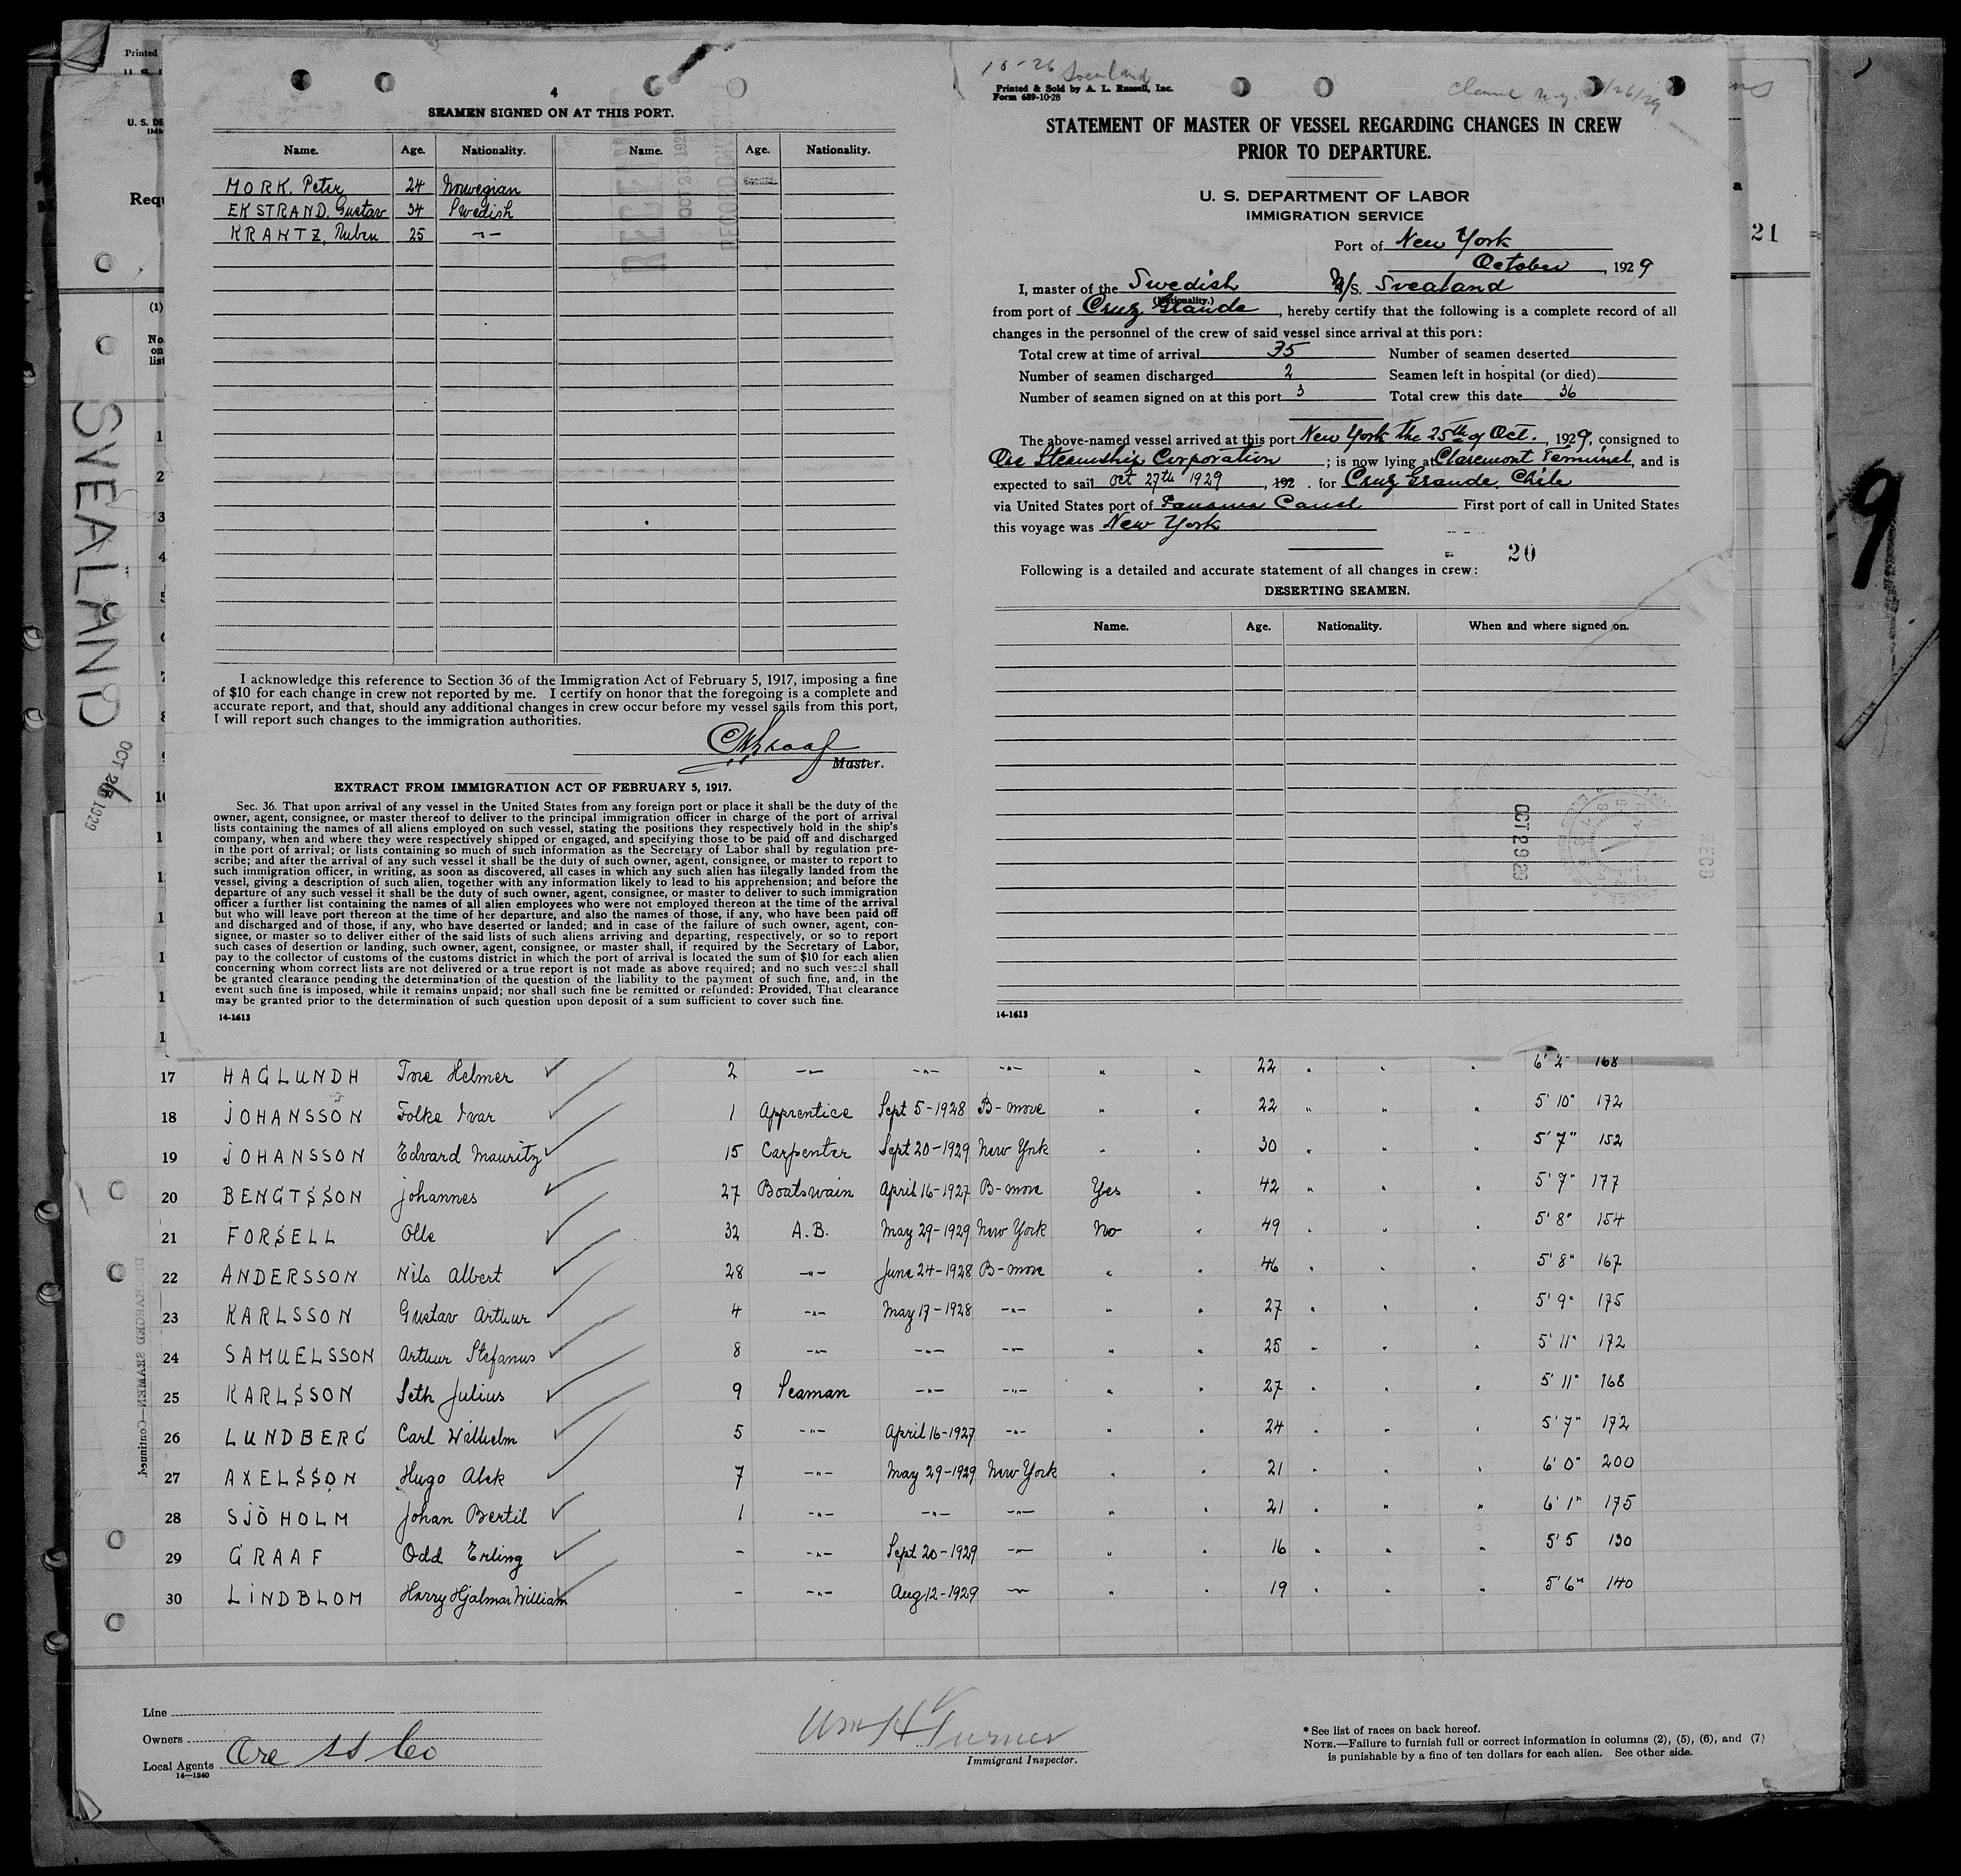 4
SEAMEN SIGNED ON AT THIS PORT.
Name. Age. Nationality. Name. Age. Nationality.
MORK, Peter 24 Norwegian
EKSTRAND, Gustav 34 Swedish
KRANTZ, Ruben 25 -"-
I acknowledge this reference to Section 36 of the Immigration Act of February 5, 1917, imposing a fine
of $10 for each change in crew not reported by me. I certify on honor that the foregoing is a complete and
accurate report, and that, should any additional changes in crew occur before my vessel sails from this port,
I will report such changes to the immigration authorities.
Master.
EXTRACT FROM IMMIGRATION ACT OF FEBRUARY 5, 1917.
Sec. 36. That upon arrival of any vessel in the United States from any foreign port or place it shall be the duty of the
owner, agent, consignee, or master thereof to deliver to the principal immigration officer in charge of the port of arrival
lists containing the names of all aliens employed on such vessel, stating the positions they respectively hold in the ship's
company, when and where they were respectively shipped or engaged, and specifying those to be paid off and discharged
in the port of arrival; or lists containing so much of such information as the Secretary of Labor shall by regulation pre-
scribe; and after the arrival of any such vessel it shall be the duty of such owner, agent, consignee, or master to report to
such immigration officer, in writing, as soon as discovered, all cases in which any such alien has illegally landed from the
vessel, giving a description of such alien, together with any information likely to lead to his apprehension; and before the
departure of any such vessel it shall be the duty of such owner, agent, consignee, or master to deliver to such immigration
officer a further list containing the names of all alien employees who were not employed thereon at the time of the arrival
but who will leave port thereon at the time of her departure, and also the names of those, if any, who have been paid off
and discharged and of those, if any, who have deserted or landed; and in case of the failure of such owner, agent, con-
signee, or master so to deliver either of the said lists of such aliens arriving and departing, respectively, or so to report
such cases of desertion or landing, such owner, agent, consignee, or master shall, if required by the Secretary of Labor,
pay to the collector of customs of the customs district in which the port of arrival is located the sum of $10 for each alien
concerning whom correct lists are not delivered or a true report is not made as above required; and no such vessel shall
be granted clearance pending the determination of the question of the liability to the payment of such fine, and, in the
event such fine is imposed, while it remains unpaid; nor shall such fine be remitted or refunded: Provided, That clearance
may be granted prior to the determination of such question upon deposit of a sum sufficient to cover such fine.
14-1613
10-26 Svealand
Printed & Sold by A. L. Russell, Inc.
Form 689-10-28
STATEMENT OF MASTER OF VESSEL REGARDING CHANGES IN CREW
PRIOR TO DEPARTURE.
U. S. DEPARTMENT OF LABOR
IMMIGRATION SERVICE
Port of New York
October, 1929
I, master of the Swedish M/S. Svealand
(Nationality.)
from port of Cruz Grande, hereby certify that the following is a complete record of all
changes in the personnel of the crew of said vessel since arrival at this port:
Total crew at time of arrival 35 Number of seamen deserted
Number of seamen discharged 2 Seamen left in hospital (or died)
Number of seamen signed on at this port 3 Total crew this date 36
The above-named vessel arrived at this port New York the 25th of Oct., 1929, consigned to
Ore Steamship Corporation; is now lying at Claremont Terminal, and is
expected to sail Oct 27th 1929, 192 . for Cruz Grande, Chile
via United States port of Panama Canal First port of call in United States
this voyage was New York
20
Following is a detailed and accurate statement of all changes in crew:
DESERTING SEAMEN.
Name. Age. Nationality. When and where signed on.
OCT 29
RECD
14-1613
Printed
U. S. DE
IMM
Requ
(1)
No.
on
list
21
9
SVEALAND
OCT 26 1929
17 HAGLUNDH Tore Helmer 2 -"- -"- -"- " " 22 " " " 6' 2" 168
18 JOHANSSON Folke Ivar 1 Apprentice Sept 5-1928 B-more " " 22 " " " 5' 10" 172
19 JOHANSSON Edvard Mauritz 15 Carpenter Sept 20-1929 New York " " 30 " " " 5' 7" 152
20 BENGTSSON Johannes 27 Boatswain April 16-1927 B-more Yes " 42 " " " 5' 7" 177
21 FORSELL Olle 32 A.B. May 29-1929 New York No " 49 " " " 5' 8" 154
22 ANDERSSON Nils Albert 28 -"- June 24-1928 B-more " " 46 " " " 5' 8" 167
23 KARLSSON Gustav Arthur 4 -"- May 17-1928 -"- " " 27 " " " 5' 9" 175
24 SAMUELSSON Arthur Stefanus 8 -"- -"- -"- " " 25 " " " 5' 11" 172
25 KARLSSON Seth Julius 9 Seaman -"- -"- " " 27 " " " 5' 11" 168
26 LUNDBERG Carl Wilhelm 5 -"- April 16-1927 -"- " " 24 " " " 5' 7" 172
27 AXELSSON Hugo Alek 7 -"- May 29-1929 New York " " 21 " " " 6' 0" 200
28 SJÖHOLM Johan Bertil 1 -"- -"- -"- " " 21 " " " 6' 1" 175
29 GRAAF Odd Erling - -"- Sept 20-1929 -"- " " 16 " " " 5' 5 130
30 LINDBLOM Harry Hjalmar William - -"- Aug 12-1929 -"- " " 19 " " " 5' 6" 140
Line
Owners
Local Agents Ore SS Co
14—1240
Wm H Turner
Immigrant Inspector.
*See list of races on back hereof.
NOTE.—Failure to furnish full or correct information in columns (2), (5), (6), and (7)
is punishable by a fine of ten dollars for each alien. See other side.